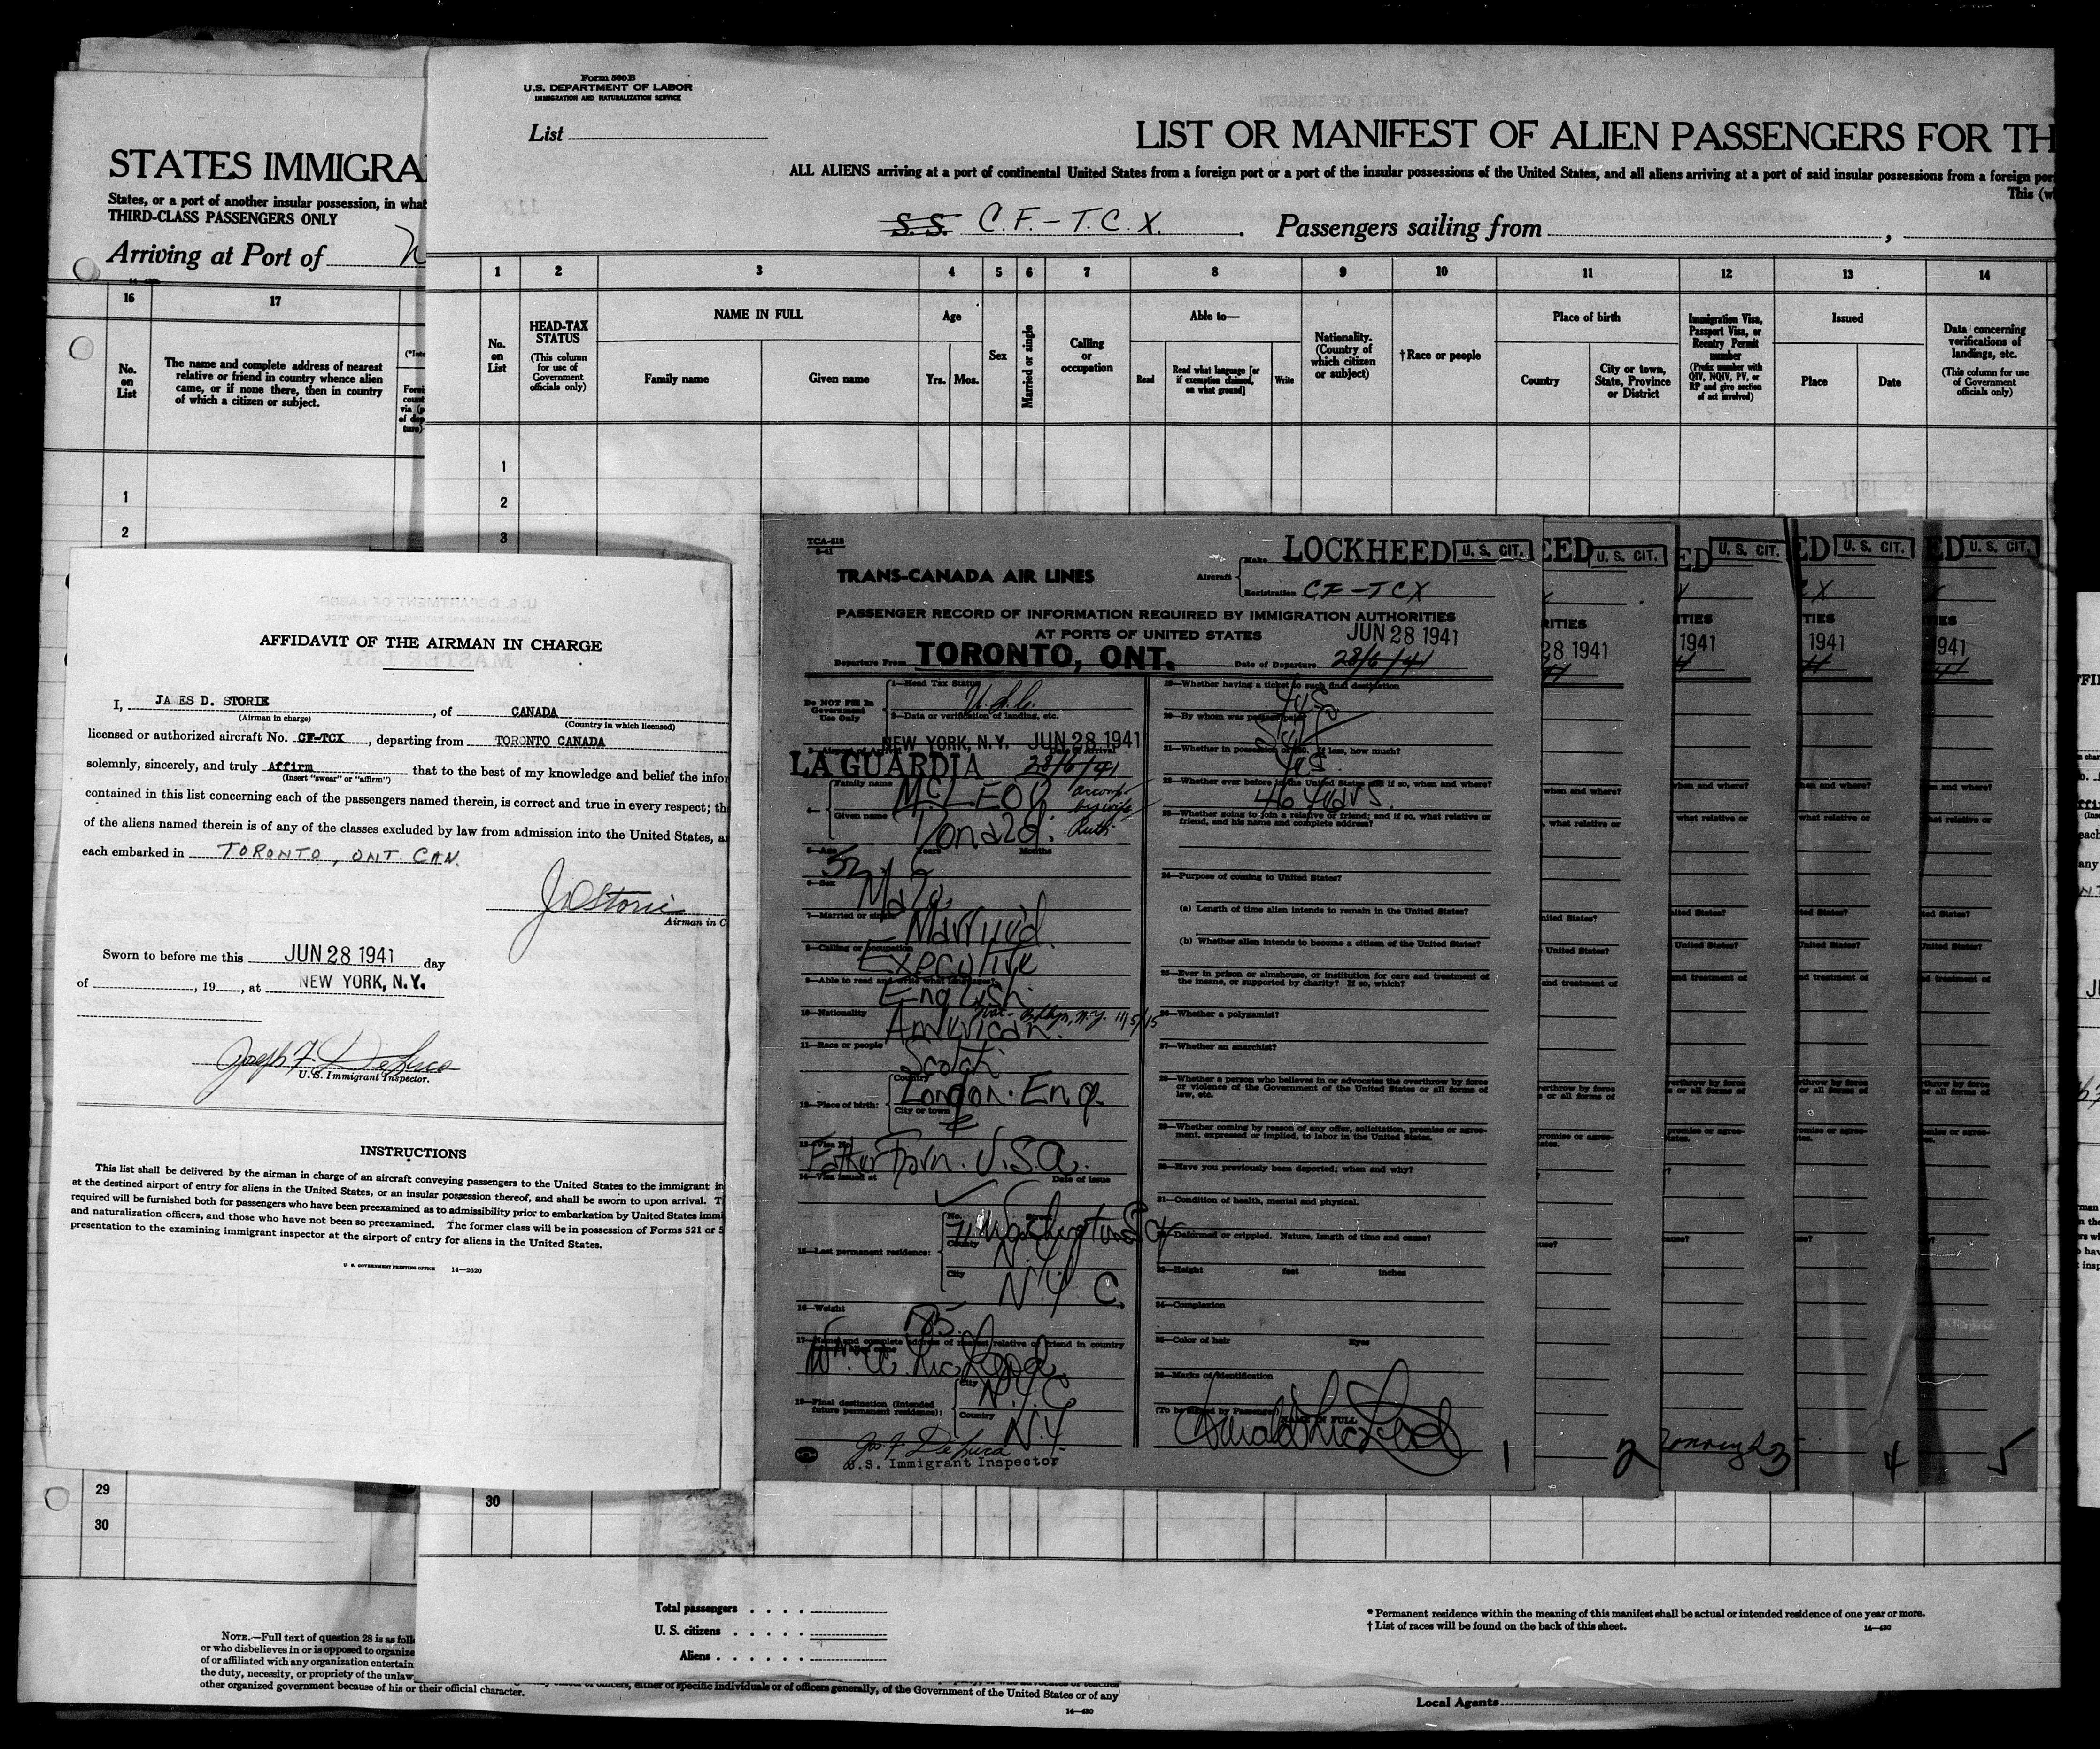 STATES IMMIGRA
States, or a port of another insular possession, in what
THIRD-CLASS PASSENGERS ONLY
Arriving at Port of
16
17
No. on List
The name and complete address of nearest
relative or friend in country whence alien
came, or if none there, then in country
of which a citizen or subject.
1
2
29
30
NOTE.—Full text of question 28 is as foll
or who disbelieves in or is opposed to organize
of or affiliated with any organization entertain
the duty, necessity, or propriety of the unlaw
other organized government because of his or their official character.
officers, either of specific individuals or of officers generally, of the Government of the United States or of any
14—430
Local Agents
Form 500B
U.S. DEPARTMENT OF LABOR
IMMIGRATION AND NATURALIZATION SERVICE
List
LIST OR MANIFEST OF ALIEN PASSENGERS FOR TH
ALL ALIENS arriving at a port of continental United States from a foreign port or a port of the insular possessions of the United States, and all aliens arriving at a port of said insular possessions from a foreign por
This (w
S.S. C.F.-T.C.X. Passengers sailing from
1 2 3 4 5 6 7 8 9 10 11 12 13 14
No. on List
HEAD-TAX STATUS
(This column for use of Government officials only)
NAME IN FULL
Family name
Given name
Age
Yrs.
Mos.
Sex
Married or single
Calling or occupation
Able to—
Read
Read what language [or if exemption claimed, on what ground]
Write
Nationality. (Country of which citizen or subject)
† Race or people
Place of birth
Country
City or town, State, Province or District
Immigration Visa, Passport Visa, or Reentry Permit number
(Prefix number with QIV, NQIV, PV, or RP and give section of act involved)
Issued
Place
Date
Data concerning verifications of landings, etc.
(This column for use of Government officials only)
1
2
3
30
Total passengers
U.S. citizens
Aliens
* Permanent residence within the meaning of this manifest shall be actual or intended residence of one year or more.
† List of races will be found on the back of this sheet.
14—430
AFFIDAVIT OF THE AIRMAN IN CHARGE
I, JA ES D. STORIE, of CANADA
(Airman in charge) (Country in which licensed)
licensed or authorized aircraft No. CF-TCX, departing from TORONTO CANADA
solemnly, sincerely, and truly Affirm that to the best of my knowledge and belief the infor
(Insert "swear" or "affirm")
contained in this list concerning each of the passengers named therein, is correct and true in every respect; th
of the aliens named therein is of any of the classes excluded by law from admission into the United States, a
each embarked in TORONTO, ONT. CAN.
J D Storie
Airman in C
Sworn to before me this JUN 28 1941 day
of , 19 , at NEW YORK, N.Y.
Joseph F. DeLuca
U.S. Immigrant Inspector.
INSTRUCTIONS
This list shall be delivered by the airman in charge of an aircraft conveying passengers to the United States to the immigrant in
at the destined airport of entry for aliens in the United States, or an insular possession thereof, and shall be sworn to upon arrival. T
required will be furnished both for passengers who have been preexamined as to admissibility prior to embarkation by United States immi
and naturalization officers, and those who have not been so preexamined. The former class will be in possession of Forms 521 or 5
presentation to the examining immigrant inspector at the airport of entry for aliens in the United States.
U. S. GOVERNMENT PRINTING OFFICE 14—2620
TCA-518
5-41
TRANS-CANADA AIR LINES
Aircraft
Make LOCKHEED
U. S. CIT.
Registration CF-TCX
PASSENGER RECORD OF INFORMATION REQUIRED BY IMMIGRATION AUTHORITIES
AT PORTS OF UNITED STATES
JUN 28 1941
Departure From TORONTO, ONT. Date of Departure 28/6/41
Do NOT Fill In Government Use Only
1—Head Tax Status U.S.C.
2—Data or verification of landing, etc.
NEW YORK, N.Y. JUN 28 1941
3—Airport of Arrival LA GUARDIA 28/6/41
4— Family name McLEOD
accomp. by wife Ruth
Given name Donald.
5—Age 52 Years Months
6—Sex Male
7—Married or single Married.
8—Calling or occupation Executive
9—Able to read and write what languages? English
10—Nationality American. Nat. Bklyn, N.Y. 11/5/15
11—Race or people Scotch
12—Place of birth: Country London. Eng.
City or town
13—Visa No.
Father Born. U.S.A.
14—Visa issued at Date of issue
15—Last permanent residence: No. Street 71 Washington Sq
County N.Y.
City N.Y.C.
16—Weight 185
17—Name and complete address of nearest relative or friend in country
Wm. A. McLeod
18—Final destination (Intended future permanent residence): City N.Y.C.
Country N.Y.
Jos. F. DeLuca
U.S. Immigrant Inspector
19—Whether having a ticket to such final destination yes
20—By whom was passage paid? Self
21—Whether in possession of $50. If less, how much? yes.
22—Whether ever before in the United States and if so, when and where?
46 years.
23—Whether going to join a relative or friend; and if so, what relative or
friend, and his name and complete address?
24—Purpose of coming to United States?
(a) Length of time alien intends to remain in the United States?
(b) Whether alien intends to become a citizen of the United States?
25—Ever in prison or almshouse, or institution for care and treatment of
the insane, or supported by charity? If so, which?
26—Whether a polygamist?
27—Whether an anarchist?
28—Whether a person who believes in or advocates the overthrow by force
or violence of the Government of the United States or all forms of
law, etc.
29—Whether coming by reason of any offer, solicitation, promise or agree-
ment, expressed or implied, to labor in the United States.
30—Have you previously been deported; when and why?
31—Condition of health, mental and physical.
32—Deformed or crippled. Nature, length of time and cause?
33—Height feet inches
34—Complexion
35—Color of hair Eyes
36—Marks of identification
(To be signed by Passenger) NAME IN FULL
Donald McLeod
1
EED U. S. CIT.
RITIES
28 1941
2
ED U. S. CIT.
TIES
1941
3
ED U. S. CIT.
TIES
1941
4
ED U. S. CIT.
IES
1941
5